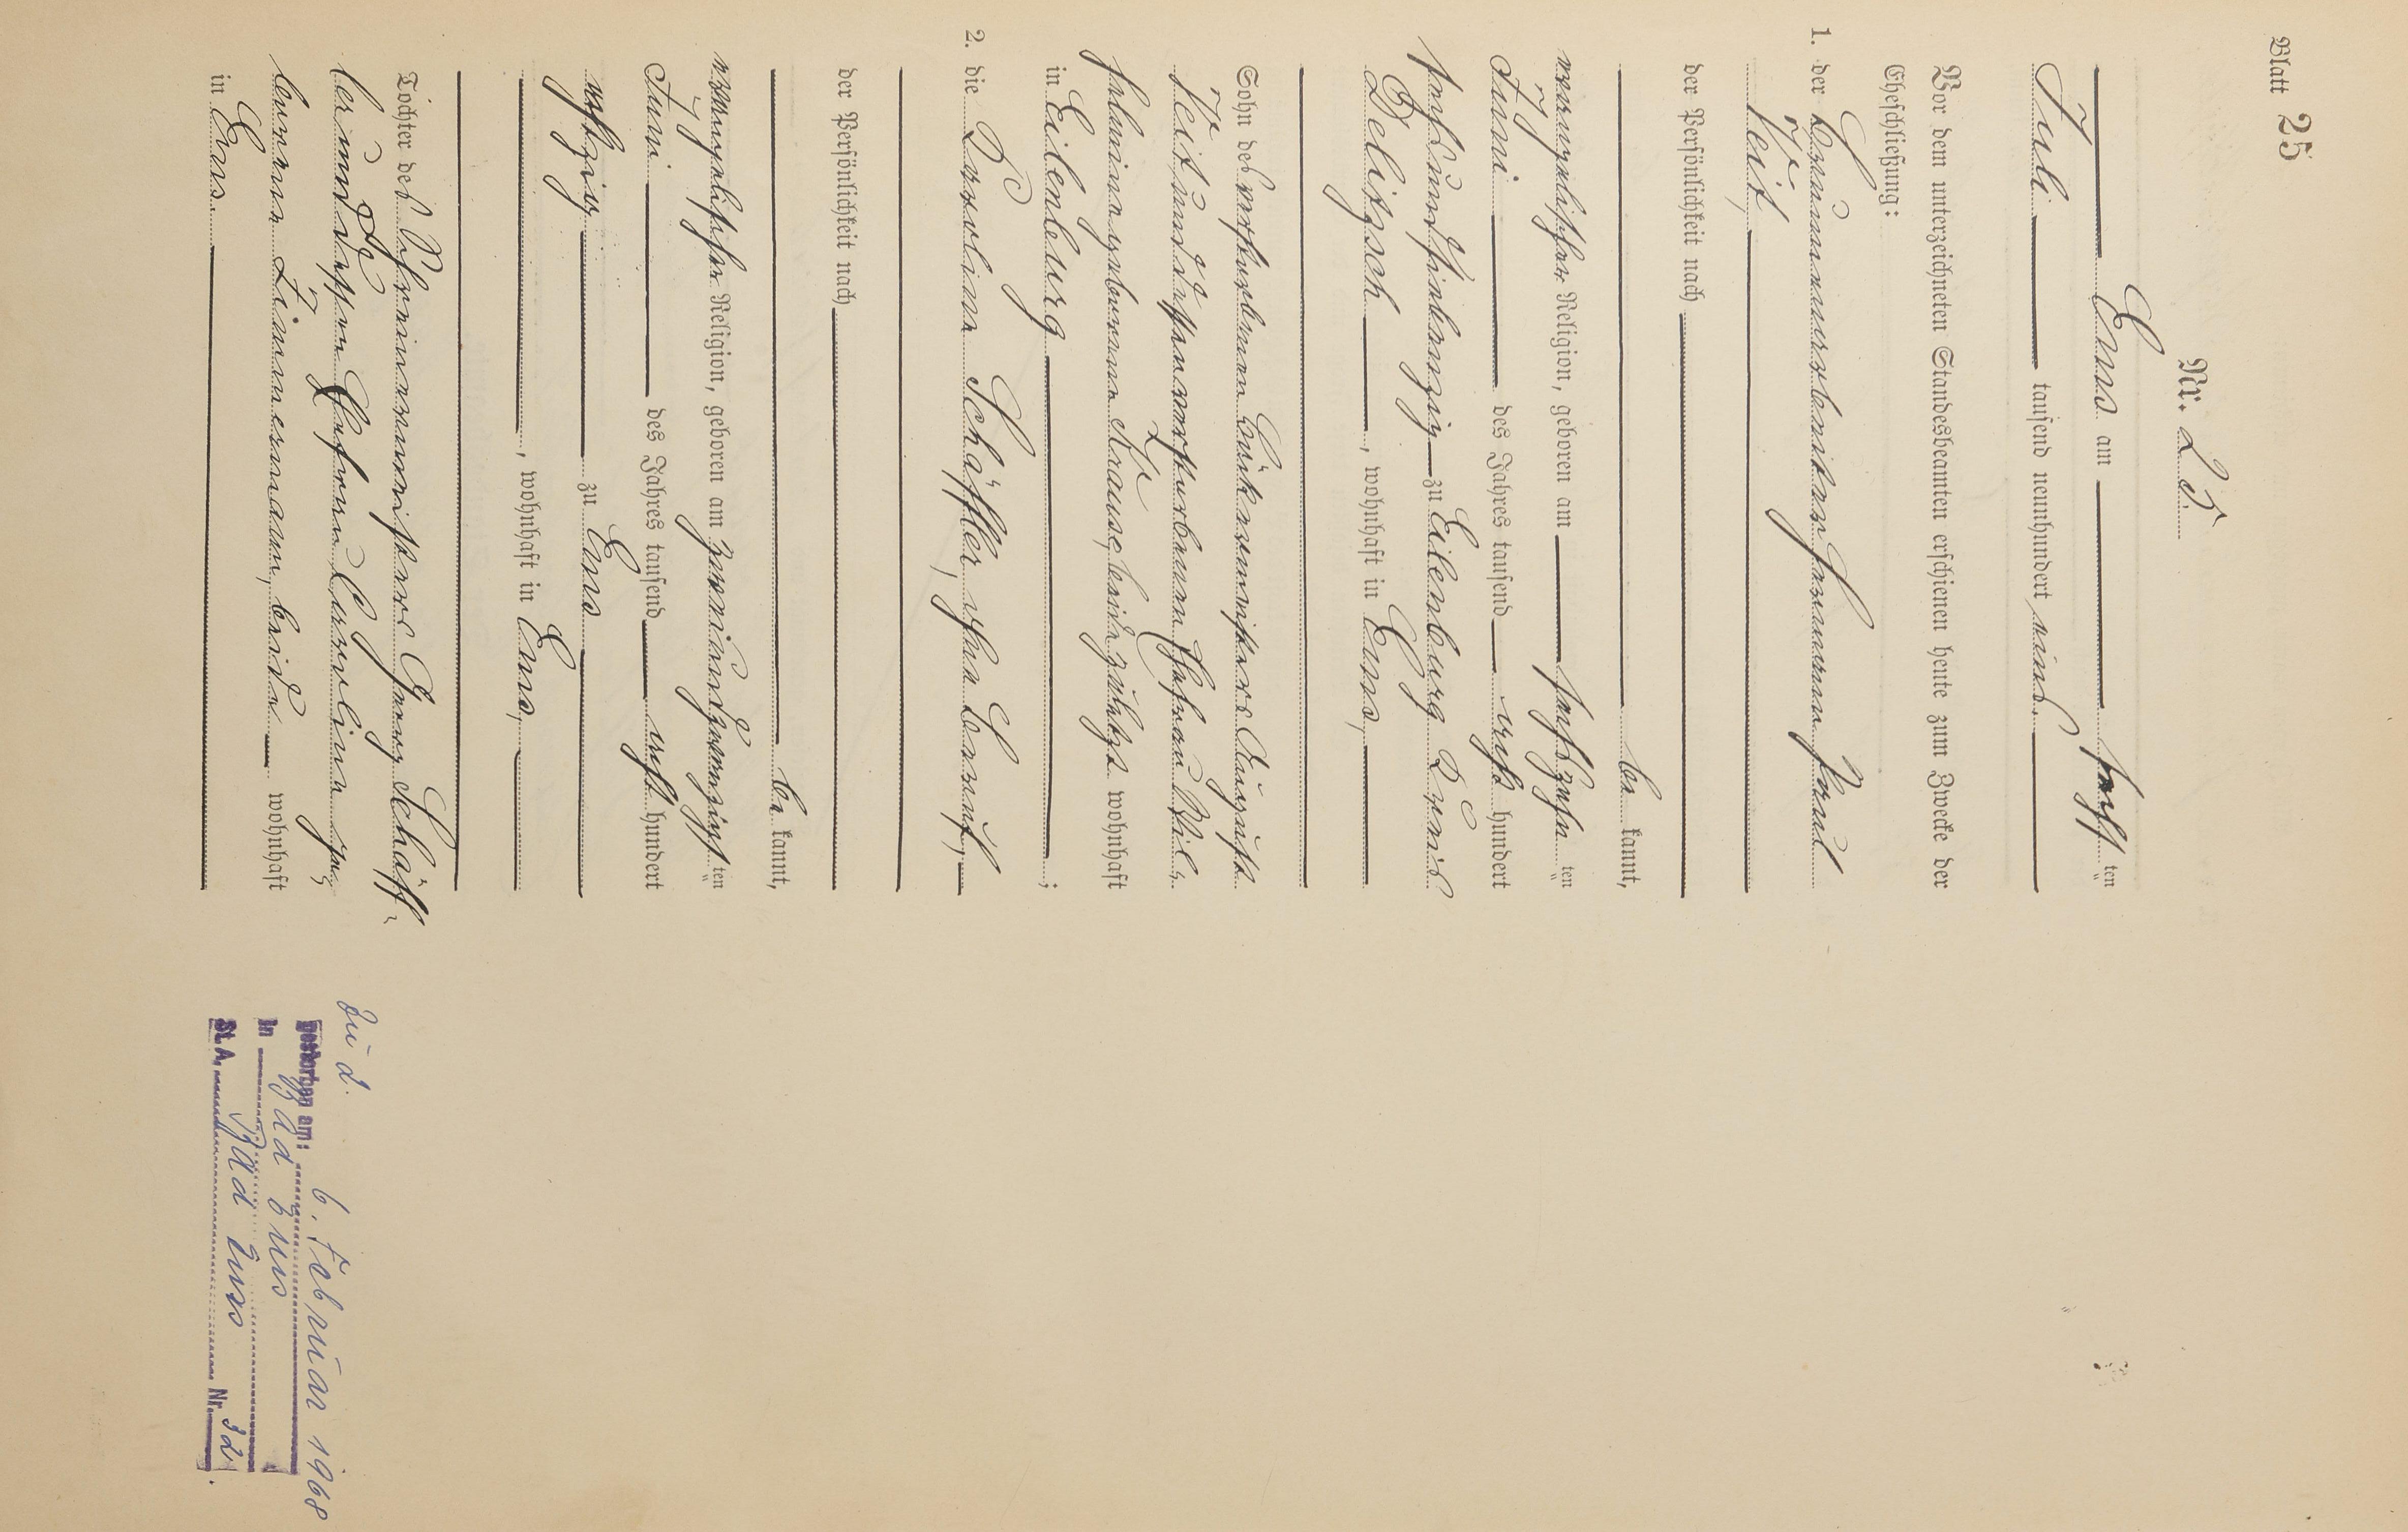 Blatt 25
Nr. 25.
Ems am sechsten
Juli tausend neunhundert neun.
Vor dem unterzeichneten Standesbeamten erschienen heute zum Zwecke der
Eheschließung:
1. der Hermann Paul
Veit,
der Persönlichkeit nach
be kannt,
evangelischer Religion, geboren am sechszehn ten
Juni des Jahres tausend acht hundert
sechsundsiebenzig zu Eilenburg Kreis
Delitzsch, wohnhaft in Ems,
Sohn des verstorbenen August
Veit und dessen verstorbenen Ehefrau Wil-
helmine geborenen Krause, beide zuletzt wohnhaft
in Eilenburg;
2. die Karoline Schäffler, ohne Beruf,
der Persönlichkeit nach
be kannt,
evangelischer Religion, geboren am zweiundzwanzigsten
Juni des Jahres tausend acht hundert
achtzig zu Ems
, wohnhaft in Ems,
Tochter des Schreinermeisters Georg Schäff-
ler und dessen Ehefrau Karoline ge-
borene Zimmermann, beide wohnhaft
in Ems.
Zu 2.
gestorben am: 6. Februar 1968
in Bad Ems
St. A. Bad Ems Nr. 32.